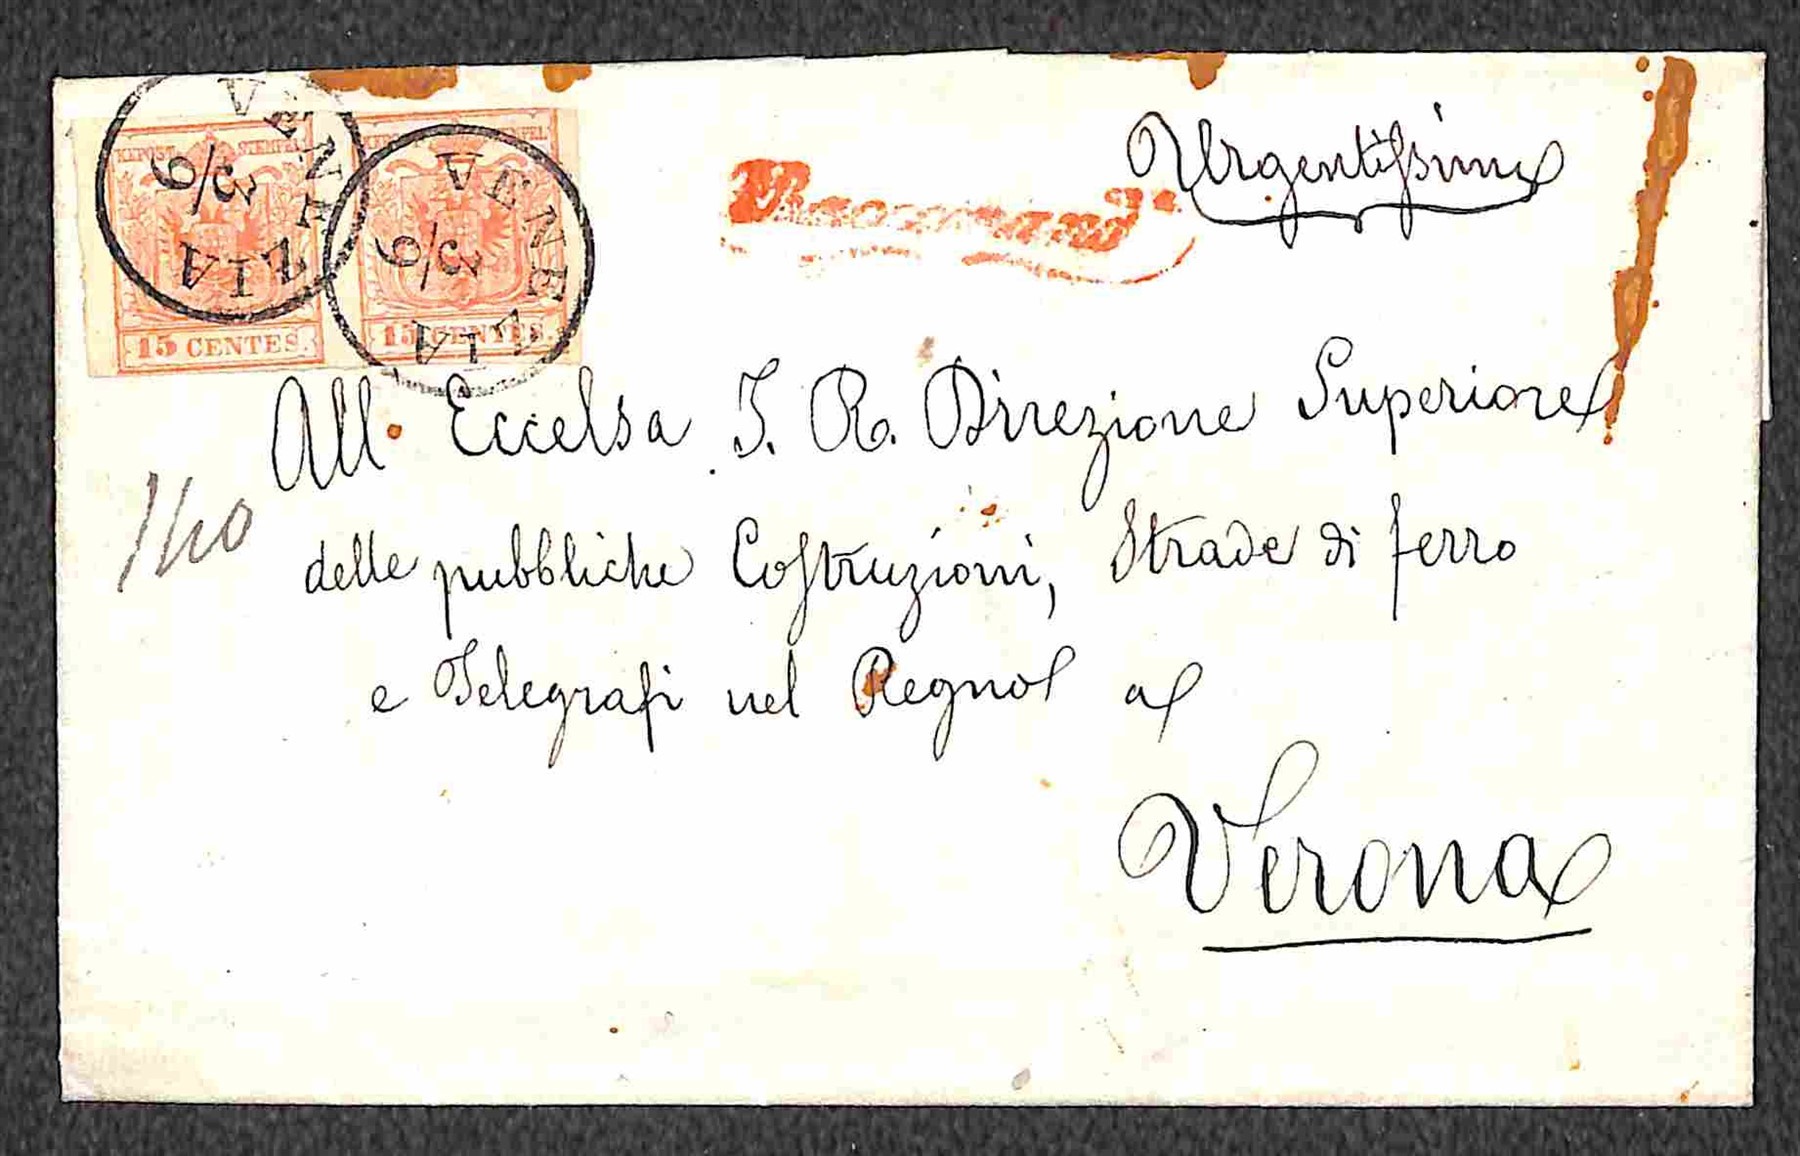 VENEZIA
3/9
VENEZIA
3/9
KKPOST-STEMPEL
KKPOST-STEMPEL
15 CENTES.
15 CENTES.
Raccomand.ta
Urgentissima
All. Eccelsa I. R. Direzione Superiore
delle pubbliche Costruzioni, Strade di ferro
e Telegrafi nel Regno a
Verona